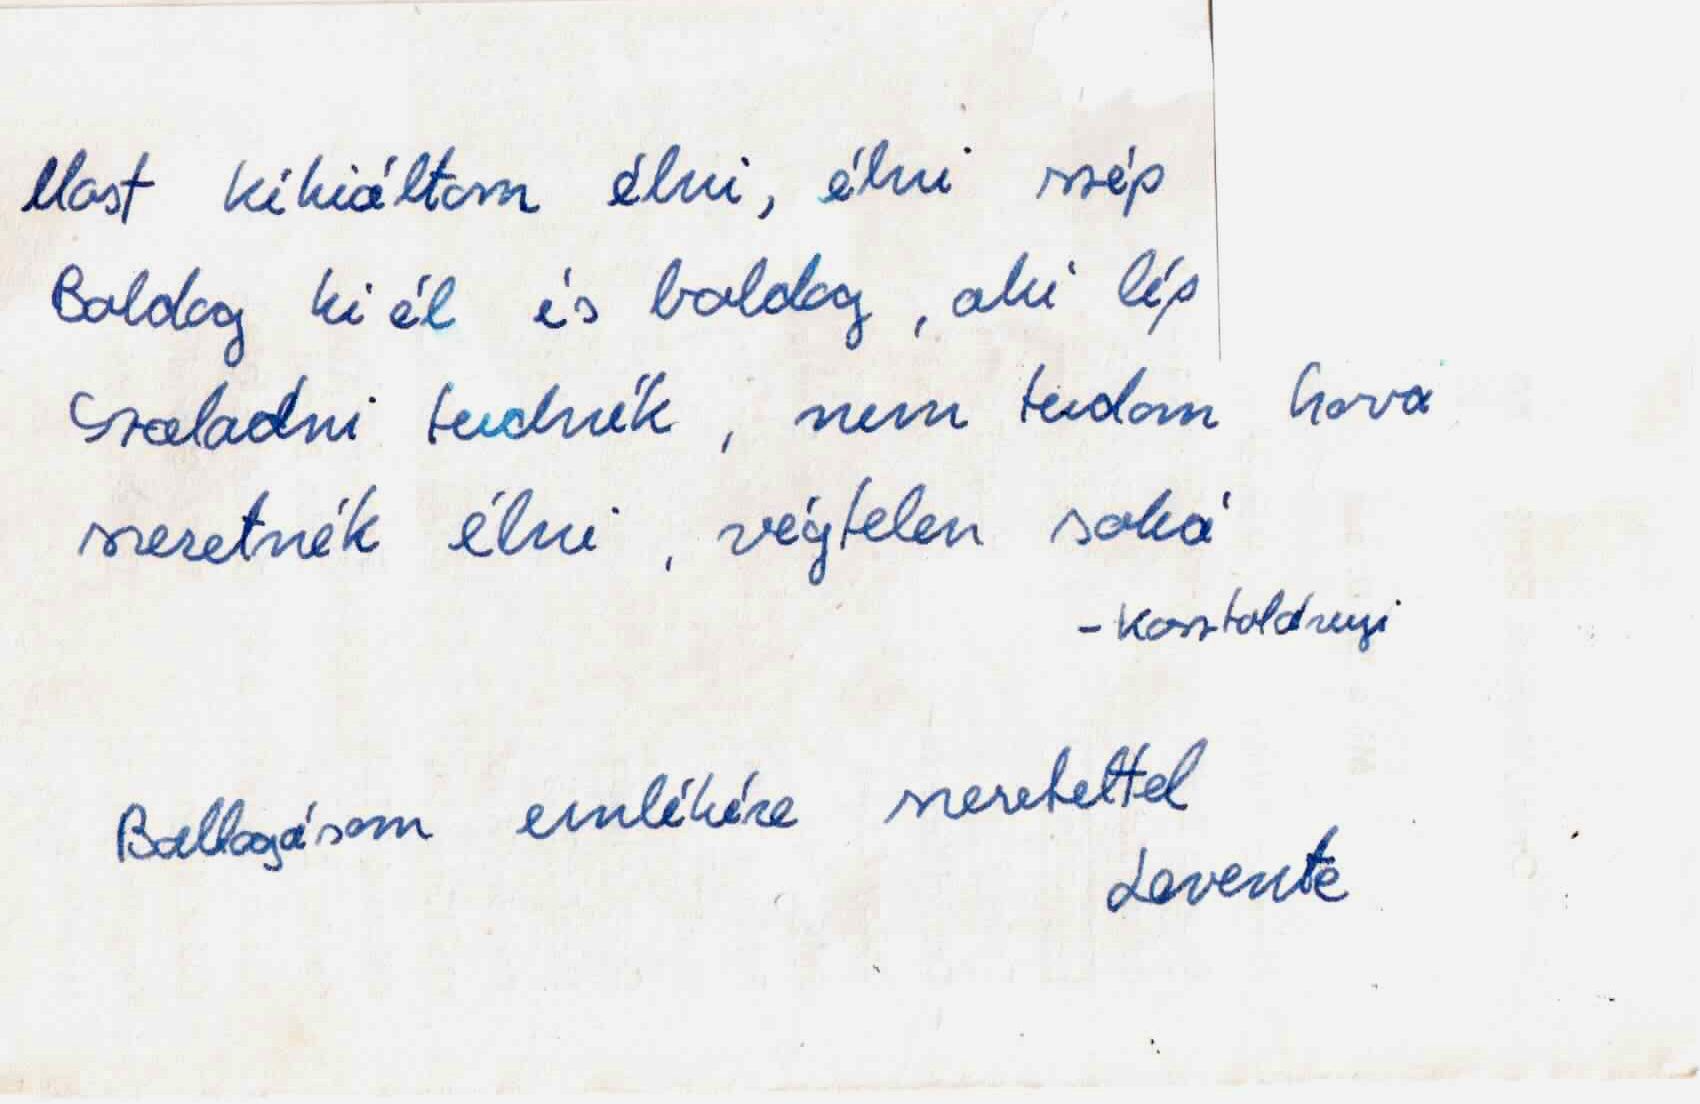 Most kikiáltom élni, élni szép
Boldog ki él és boldog, aki lép
Szaladni tudnék, nem tudom hova
szeretnék élni, végtelen soká
- Kosztolányi
Ballagásom emlékére szeretettel
Levente